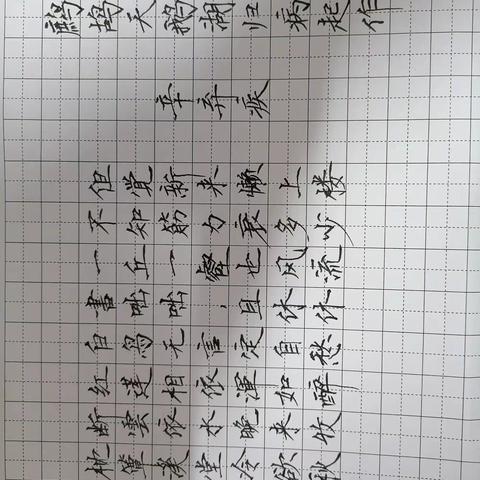 枕簟溪堂冷欲秋
断雲依水晚来收
红莲相依渾如醉
白鸟无言定自愁
書咄咄，且休休
一丘一壑也风流
不知筋力衰多少
但觉新来懒上楼
辛弃疾
鹧鸪天 鹅湖归 病起作